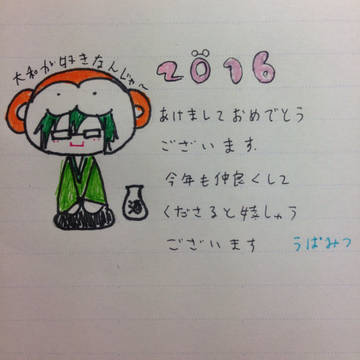 大和が好きなんじゃ〜
2016
あけましておめでとう
ございます.
今年も仲良くして
くださると嬉しゅう
ございます
うぱみつ
酒